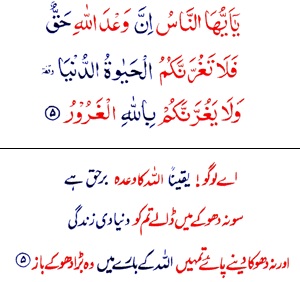 يٰٓاَيُّهَا النَّاسُ اِنَّ وَعْدَ اللّٰهِ حَقٌّ
فَلَا تَغُرَّنَّكُمُ الْحَيٰوةُ الدُّنْيَا وقفة
وَلَا يَغُرَّنَّكُمْ بِاللّٰهِ الْغَرُوْرُ ۵
اے لوگو! یقیناً اللہ کا وعدہ برحق ہے
سو نہ دھوکے میں ڈالے تم کو دنیاوی زندگی
اور نہ دھوکا دینے پائے تمہیں اللہ کے بارے میں وہ بڑا دھوکے باز ۵